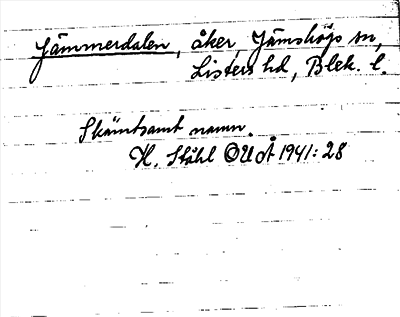 Jämmerdalen, åker, Jämshögs sn,
Listers hd, Blek. l.
Skämtsamt namn.
H. Ståhl OUÅ 1941: 28